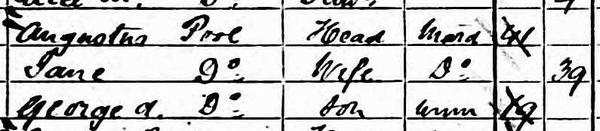 Augustus Pool Head Mard 41
Jane Do. Wife Do. 39
George A. Do. Son Unm 19